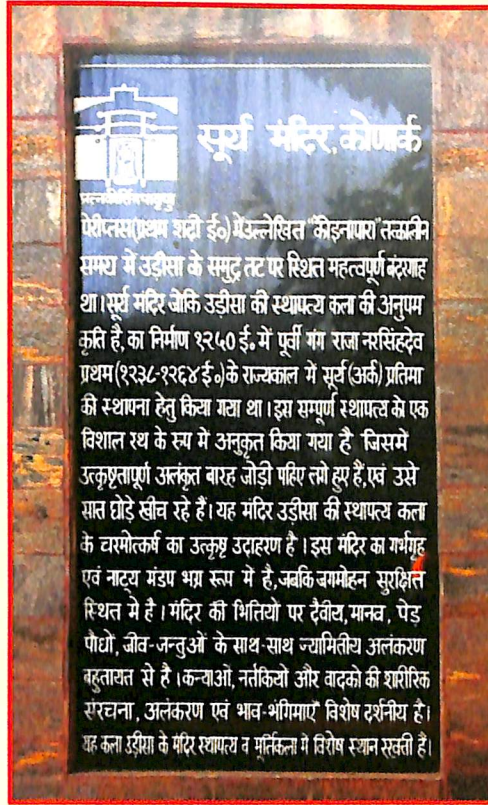 सूर्य मंदिर, कोणार्क
प्रत्नकीर्तिमपावृणु
पेरीप्लस (प्रथम शदी ई०) में उल्लेखित "कोइनापारा" तत्कालीन
समय में उड़ीसा के समुद्र तट पर स्थित महत्वपूर्ण बंदरगाह
था। सूर्य मंदिर जोकि उड़ीसा की स्थापत्य कला की अनुपम
कृति है, का निर्माण १२५० ई० में पूर्वी गंग राजा नरसिंहदेव
प्रथम (१२३८-१२६४ ई०) के राज्यकाल में सूर्य (अर्क) प्रतिमा
की स्थापना हेतु किया गया था। इस सम्पूर्ण स्थापत्य को एक
विशाल रथ के रुप में अनुकृत किया गया है जिसमें
उत्कृष्टतापूर्ण अलंकृत बारह जोड़ी पहिए लगे हुए हैं, एवं उसे
सात घोड़े खीच रहे हैं। यह मंदिर उड़ीसा की स्थापत्य कला
के चरमोत्कर्ष का उत्कृष्ट उदाहरण है। इस मंदिर का गर्भगृह
एवं नाट्य मंडप भग्न रूप में है, जबकि जगमोहन सुरक्षित
स्थित मे है। मंदिर की भितियो पर दैवीय, मानव, पेड़
पौधों, जीव-जन्तुओं के साथ-साथ ज्यामितीय अलंकरण
बहुतायत से है। कन्याओं, नर्तकियो और वादको की शारीरिक
संरचना, अलंकरण एवं भाव-भंगिमाएँ विशेष दर्शनीय है।
यह कला उड़ीसा के मंदिर स्थापत्य व मूर्तिकला मे विशेष स्थान रखती हैं।